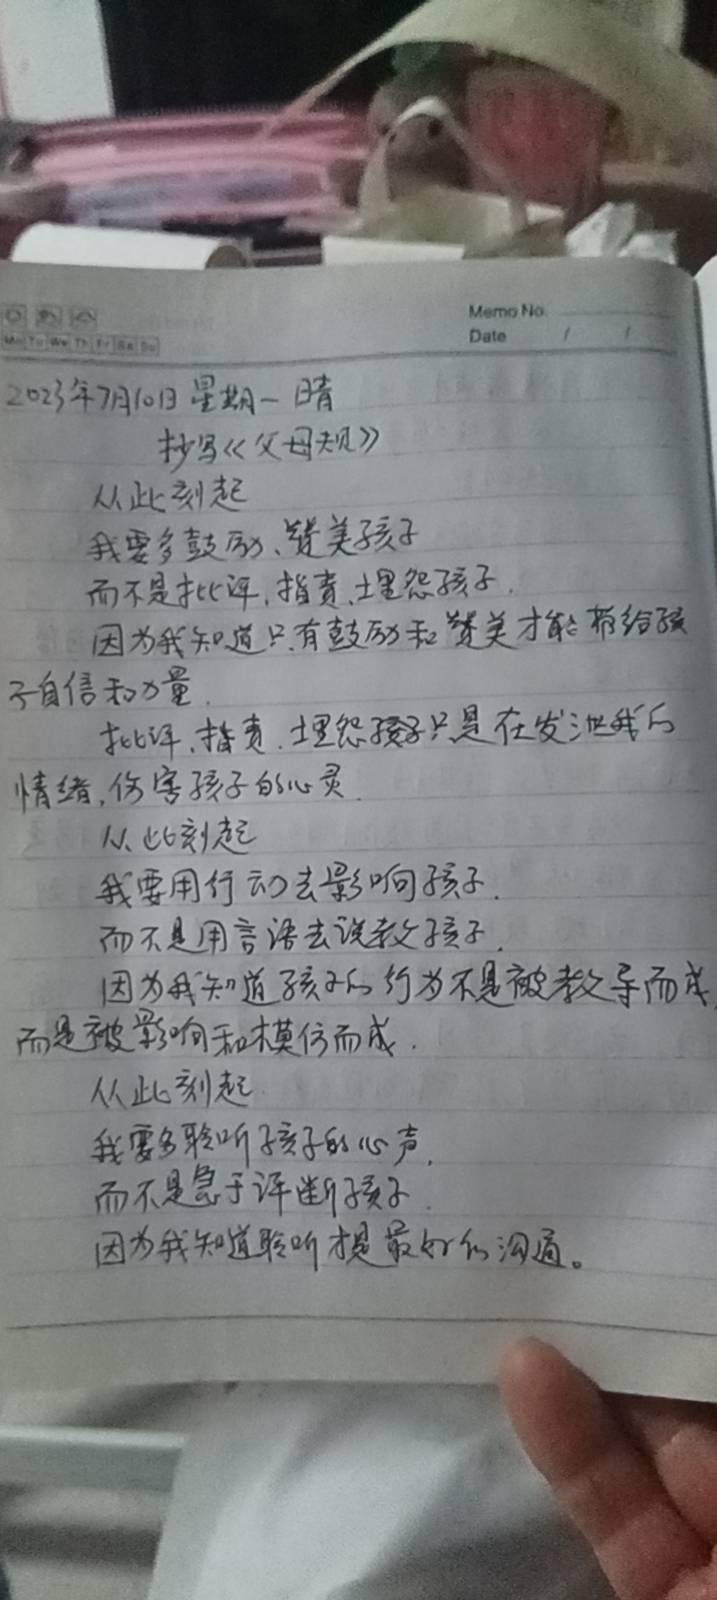 Memo No.
Date / /
Mo Tu We Th Fr Sa Su
2023年7月10日 星期一 晴
抄写《父母规》
从此刻起
我要多鼓励、赞美孩子
而不是批评、指责、埋怨孩子.
因为我知道只有鼓励和赞美才能带给孩
子自信和力量.
批评、指责、埋怨孩子只是在发泄我的
情绪,伤害孩子的心灵.
从此刻起
我要用行动去影响孩子.
而不是用言语去说教孩子.
因为我知道孩子的行为不是被教导而成,
而是被影响和模仿而成.
从此刻起
我要多聆听孩子的心声.
而不是急于评断孩子.
因为我知道聆听才是最好的沟通。